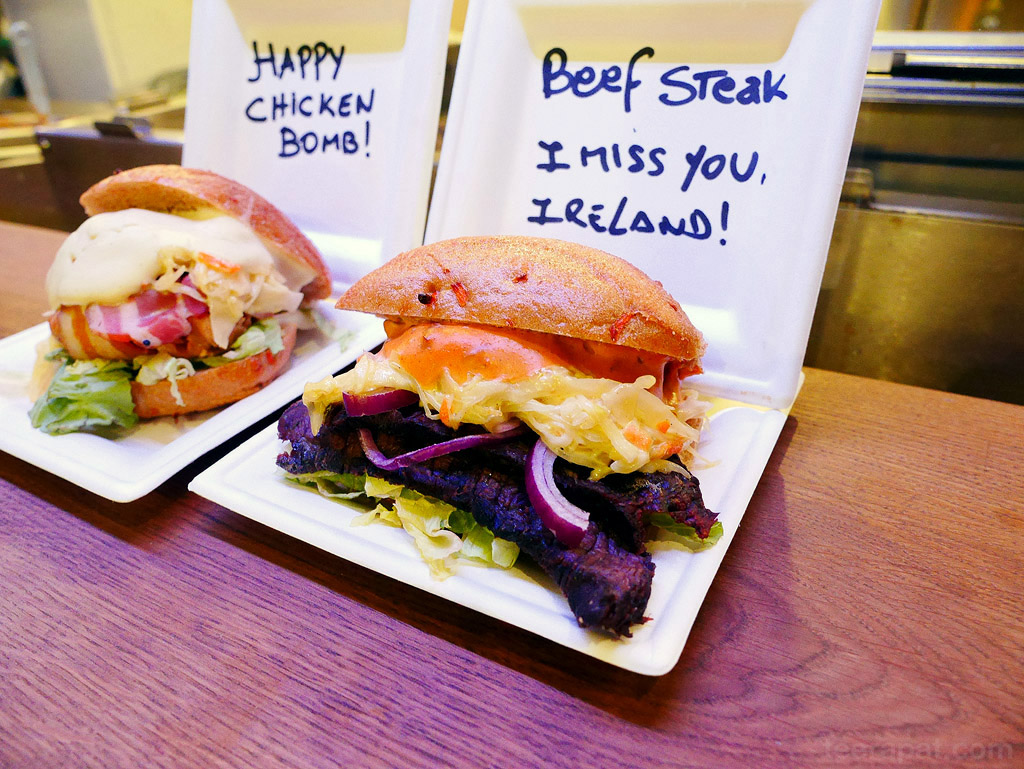 HAPPY
CHICKEN
BOMB!
Beef Steak
I MISS YOU,
IRELAND!